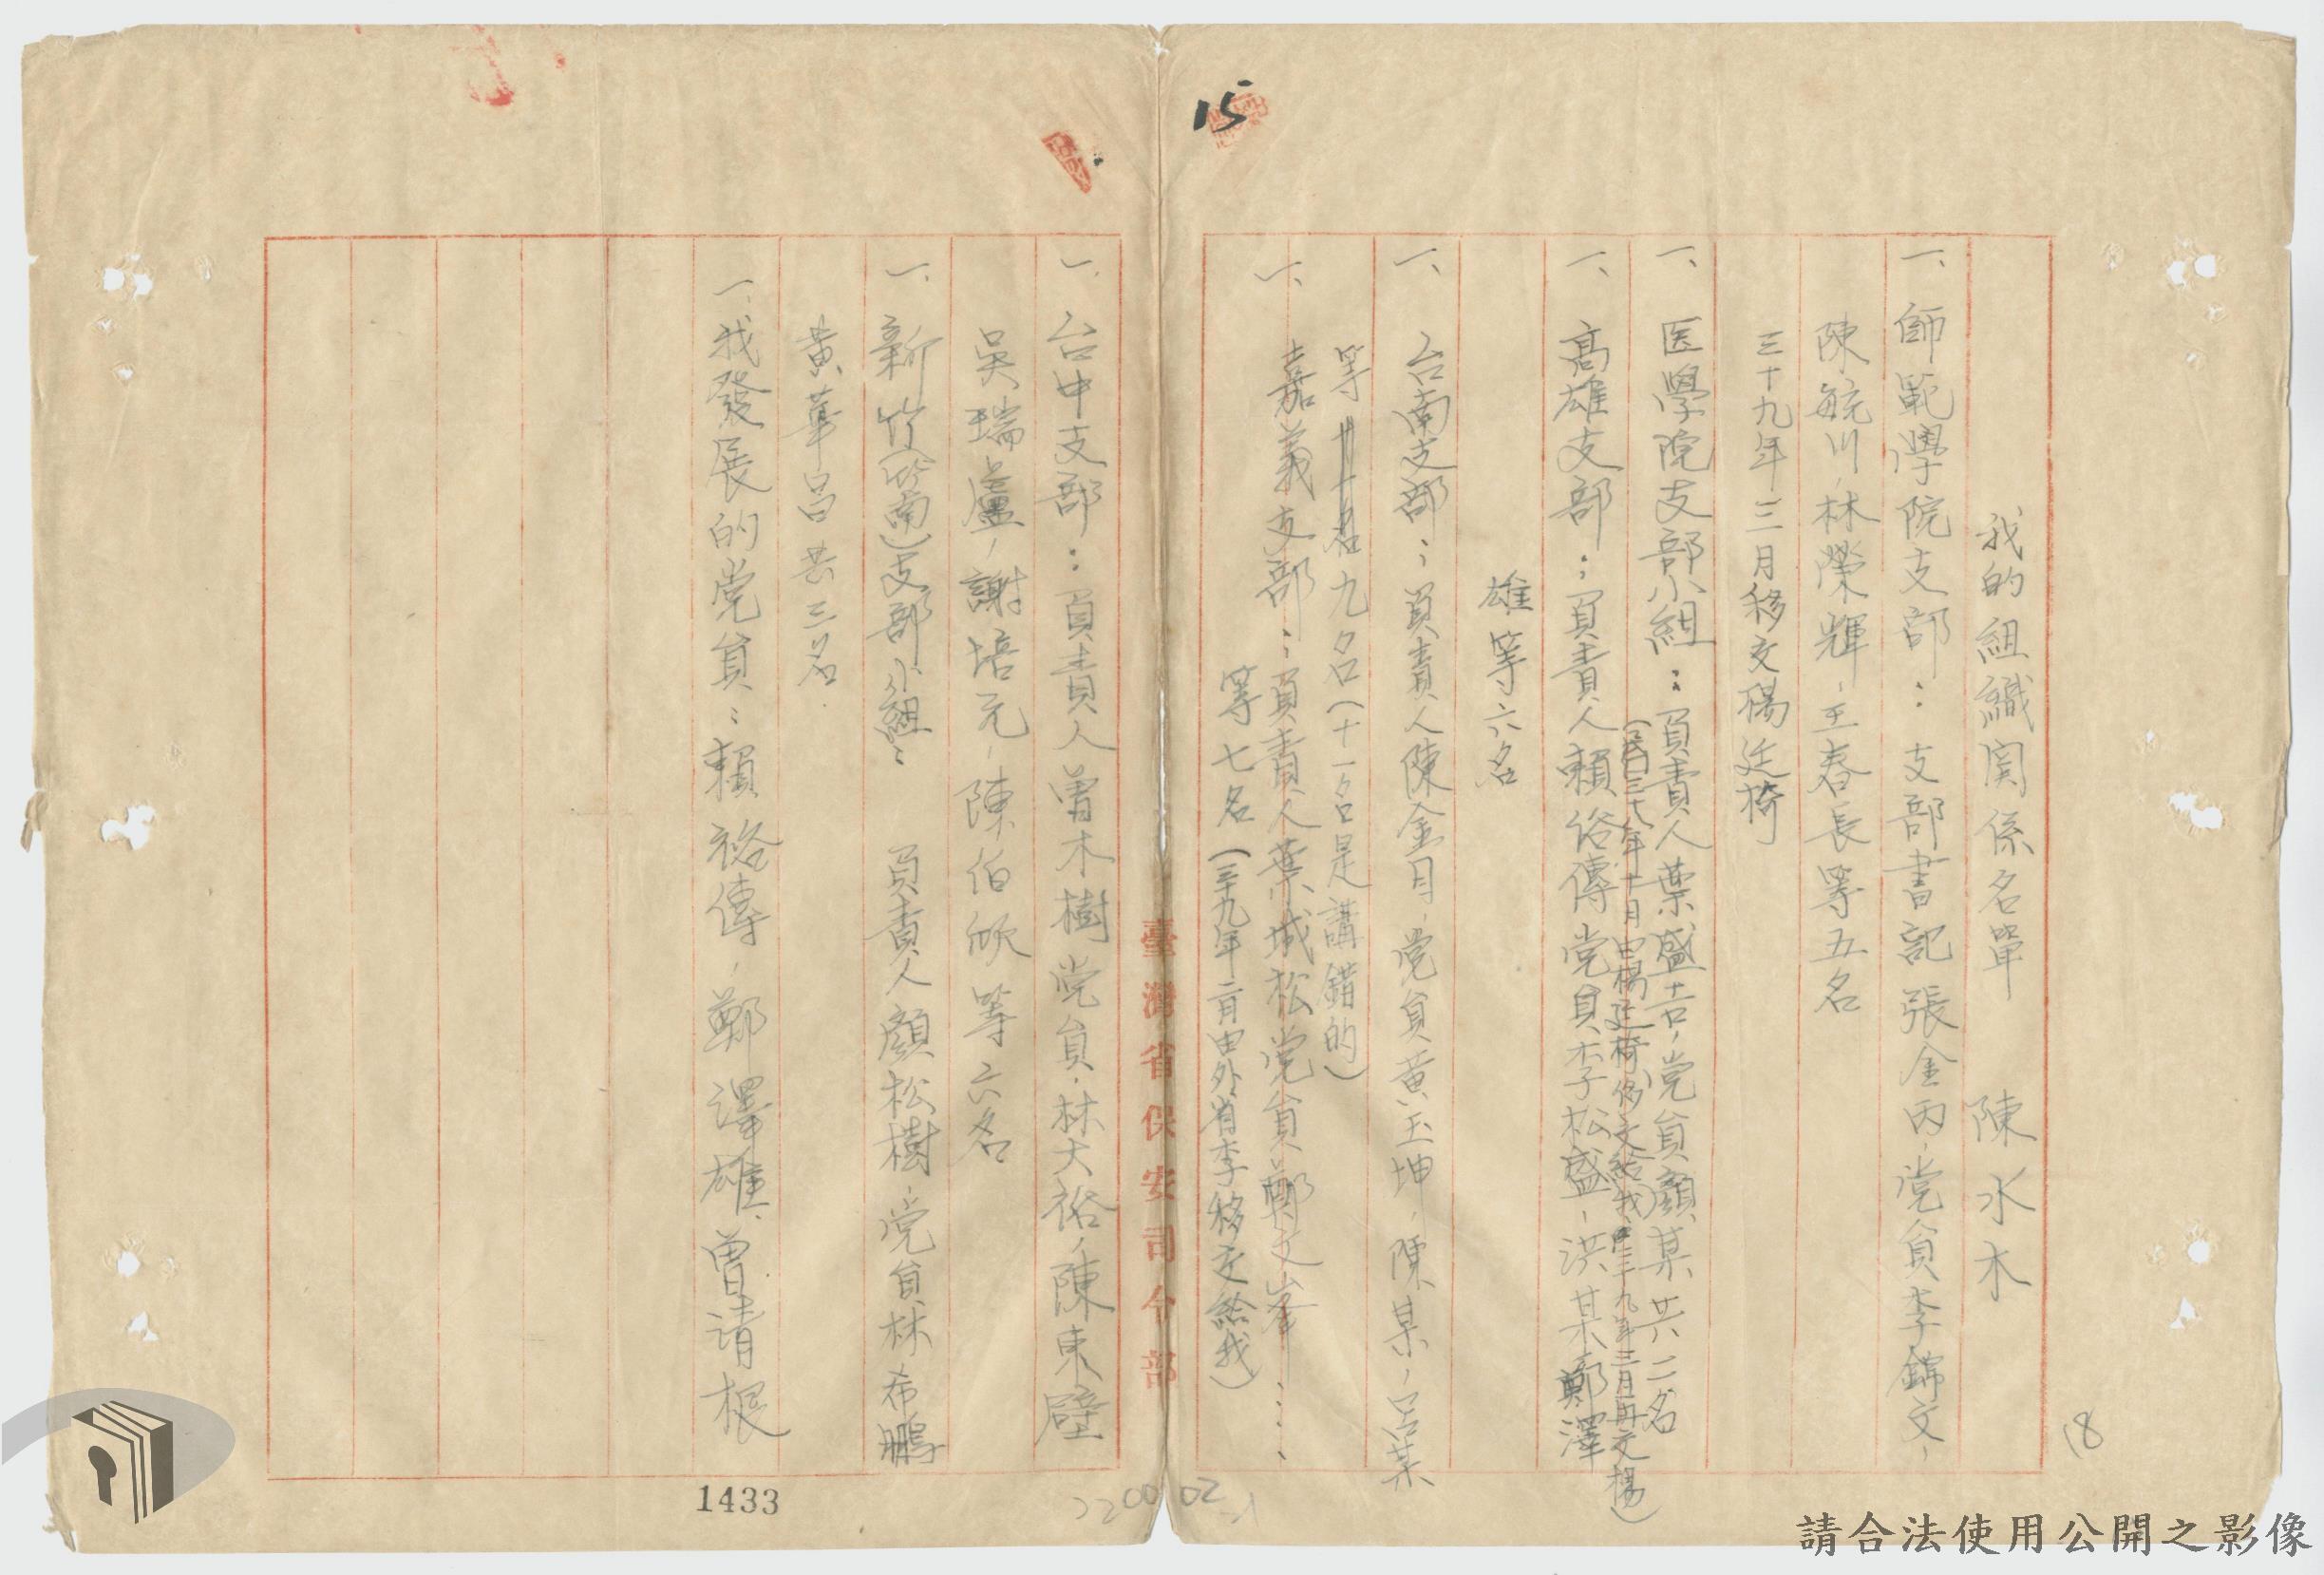 15
18
我的組織関係名單　陳水木
一、師範學院支部：支部書記張金丙，党員李錦文，
陳毓川，林榮輝，王春長等五名
三十九年三月移交楊廷椅
一、医學院支部小組：負責人葉盛吉，党員顏某共二名
(民國三十八年十一月由楊廷椅移交給我，三十九年三月再交楊)
一、高雄支部：負責人賴裕傳党員李松盛，洪某鄭澤
雄等六名
一、台南支部：負責人陳金目，党員黃玉坤，陳某，呂某
等十一名九名(十一名是講錯的)
一、嘉義支部：負責人葉城松党員鄭文峯……
等七名(三十九年二月由外省李移交給我)
臺灣省保安司令部
一、台中支部：負責人曾木樹党員，林大裕，陳東壁
吳瑞盧，謝培元，陳伯欣等六名
一、新竹(竹南)支部小組：負責人顏松樹，党員林希鵬
黃華昌共三名
一、我發展的党員：賴裕傳，鄭澤雄、曾清根
1433
請合法使用公開之影像